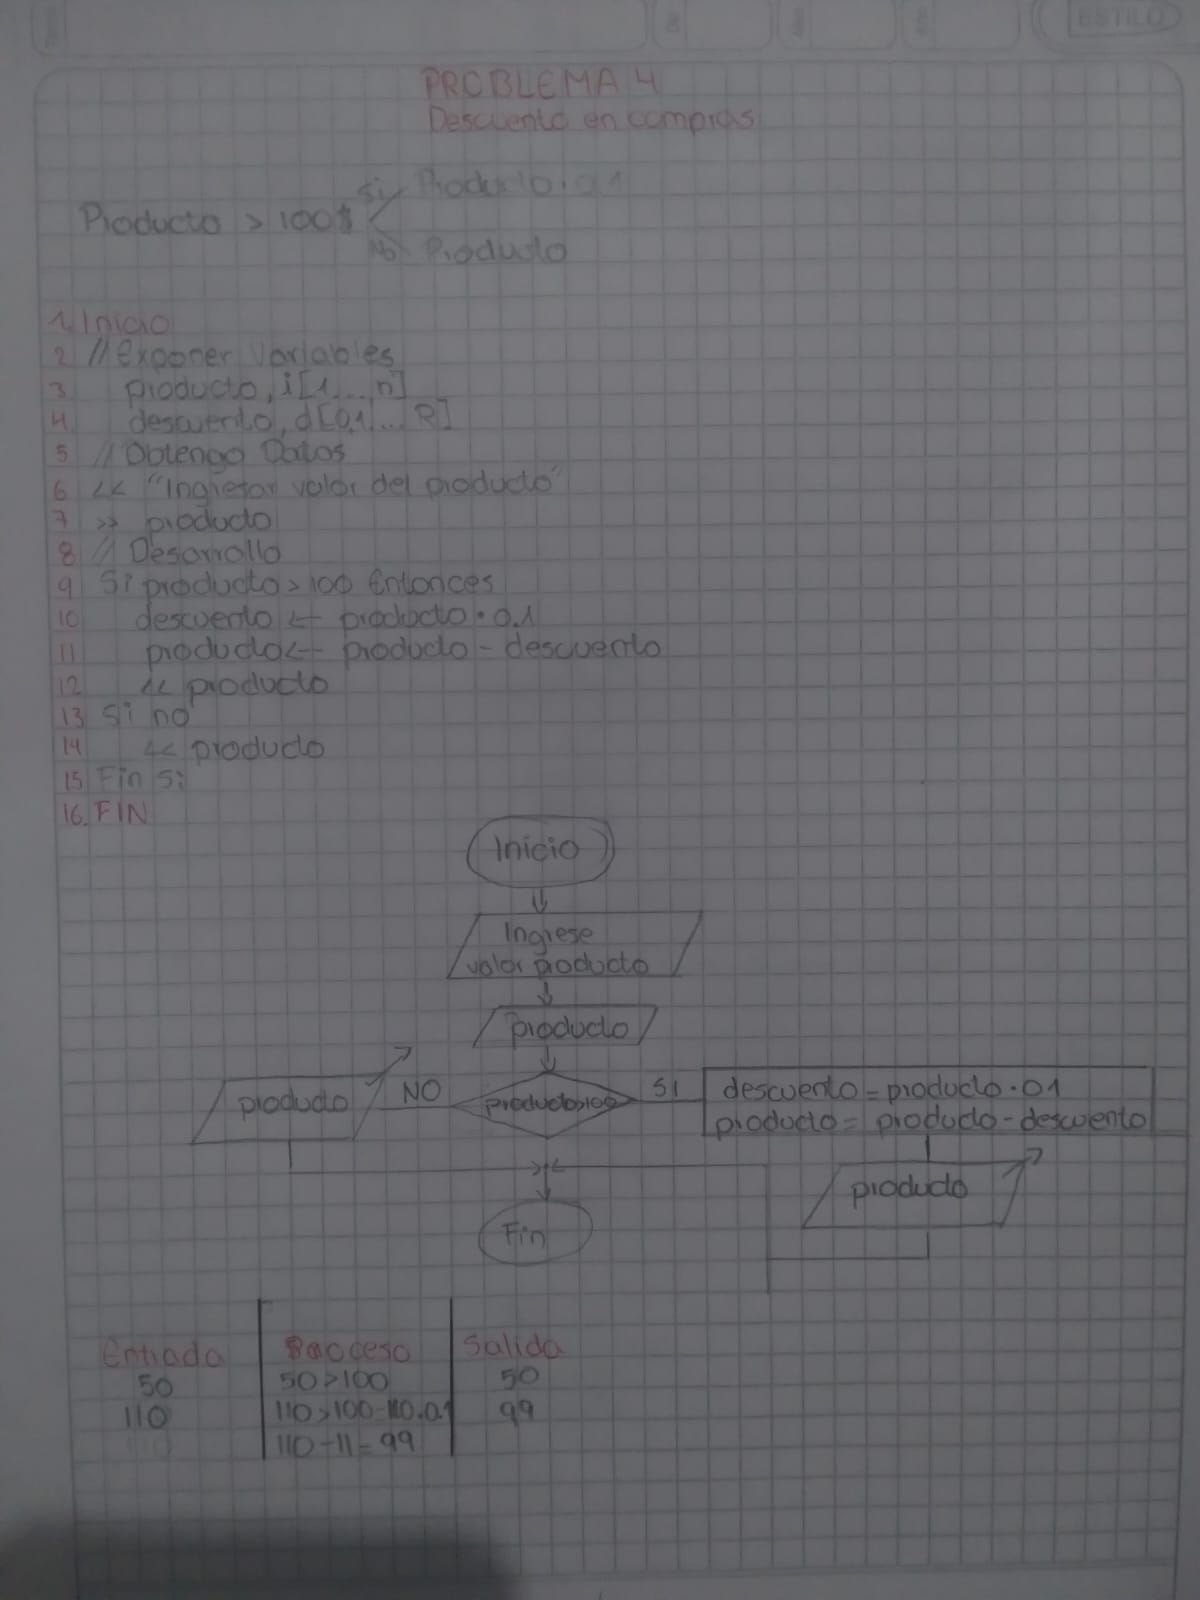 ESTILO
PROBLEMA 4
Descuento en compras
Si Producto · 0.1
Producto > 100$
No Producto
1. Inicio
2 // exponer variables
3 producto, i [1 ... n]
4. descuento, d [0,1 ... R]
5 // Obtengo Datos
6 << "Ingresar valor del producto"
7 >> producto
8 // Desarrollo
9 Si producto > 100 Entonces
10 descuento ← producto · 0.1
11 producto ← producto - descuento
12 << producto
13 Si no
14 << producto
15 Fin Si
16. FIN
Inicio
Ingrese
valor producto
producto
producto NO producto>100 SI descuento = producto · 01
producto = producto - descuento
producto
Fin
Entrada Proceso Salida
50 50 > 100 50
110 110 > 100 - 110 . 0.1 99
110 - 11 = 99